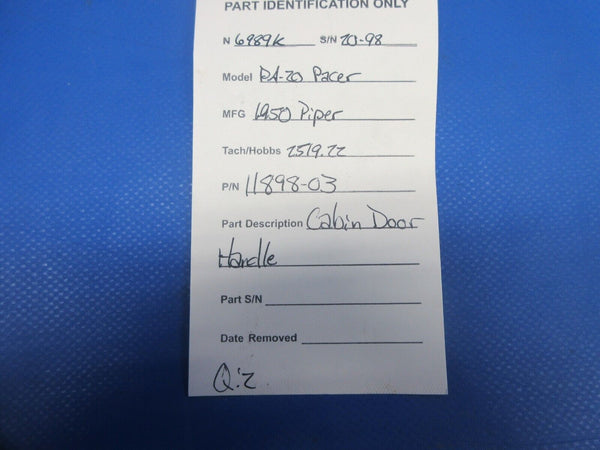 PART IDENTIFICATION ONLY
N 6989K S/N 20-98
Model PA-20 Pacer
MFG 1950 Piper
Tach/Hobbs 2519.22
P/N 11898-03
Part Description Cabin Door
Handle
Part S/N
Date Removed
Q:2